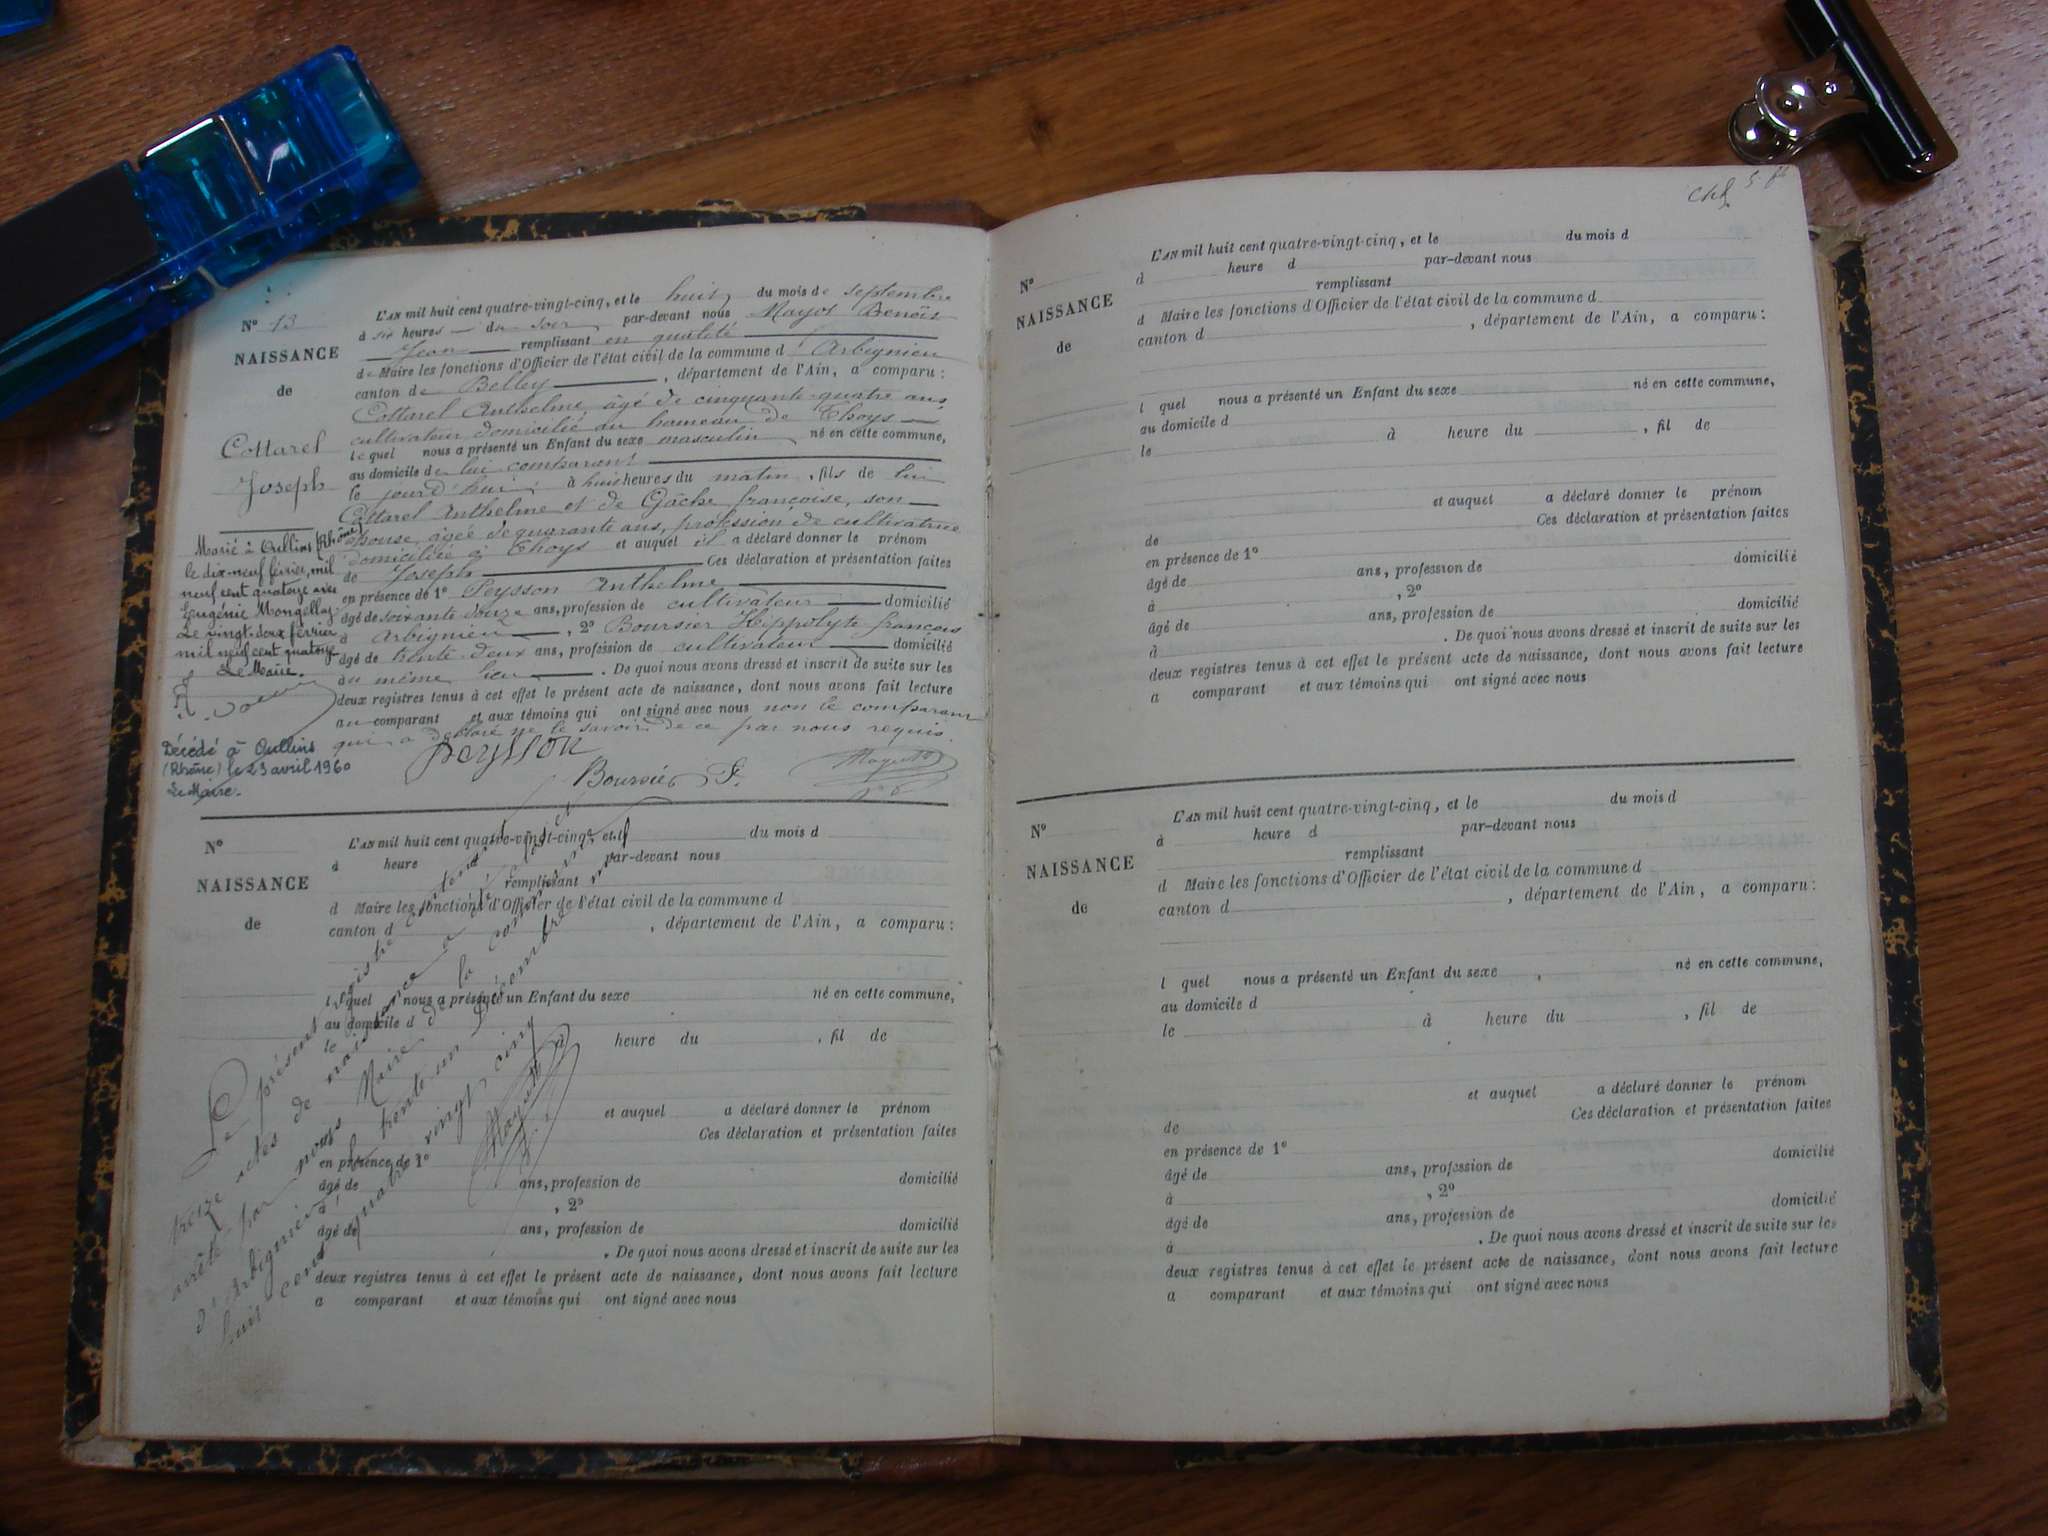 N° 13
NAISSANCE
de
Cottarel
Joseph
Marié à Oullins (Rhône)
le dix-neuf février, mil
neuf cent quatorze avec
Eugénie Mongellaz
Le vingt-deux février
mil neuf cent quatorze
Le Maire.
Décédé à Oullins
(Rhône) le 23 avril 1960
Le Maire.
L'AN mil huit cent quatre-vingt-cinq, et le huit du mois de septembre
à six heures du soir par-devant nous Mayot Benoît
Jean remplissant en qualité
de Maire les fonctions d'Officier de l'état civil de la commune d'Arbignieu
canton de Belley, département de l'Ain, a comparu:
Cottarel Anthelme, âgé de cinquante-quatre ans,
cultivateur domicilié au hameau de Thoys
lequel nous a présenté un Enfant du sexe masculin né en cette commune,
au domicile de lui comparant
le jourd'hui à huit heures du matin, fils de lui
Cottarel Anthelme et de Gâche françoise, son
épouse, âgée de quarante ans, profession de cultivatrice
domiciliée à Thoys et auquel il a déclaré donner le prénom
de Joseph Ces déclaration et présentation faites
en présence de 1° Peysson Anthelme
âgé de soixante douze ans, profession de cultivateur domicilié
à Arbignieu, 2° Boursier Hippolyte françois
âgé de trente deux ans, profession de cultivateur domicilié
au même lieu. De quoi nous avons dressé et inscrit de suite sur les
deux registres tenus à cet effet le présent acte de naissance, dont nous avons fait lecture
au comparant et aux témoins qui ont signé avec nous non le comparant
qui a déclaré ne le savoir de ce par nous requis.
peysson
Boursier F.
N°
NAISSANCE
de
L'AN mil huit cent quatre-vingt-cinq, et le du mois d
à heure d par-devant nous
remplissant
d Maire les fonctions d'Officier de l'état civil de la commune d
canton d , département de l'Ain, a comparu:
l quel nous a présenté un Enfant du sexe né en cette commune,
au domicile d
le à heure du , fil de
et auquel a déclaré donner le prénom
Ces déclaration et présentation faites
en présence de 1°
âgé de ans, profession de domicilié
à , 2°
âgé de ans, profession de domicilié
. De quoi nous avons dressé et inscrit de suite sur les
deux registres tenus à cet effet le présent acte de naissance, dont nous avons fait lecture
a comparant et aux témoins qui ont signé avec nous
Le présent registre contenant
treize actes de naissance a été clos et
arrêté par nous Maire de la commune
d'Arbignieu le trente un décembre mil
huit cent quatre vingt cinq
N°
NAISSANCE
de
L'AN mil huit cent quatre-vingt-cinq, et le du mois d
à heure d par-devant nous
remplissant
d Maire les fonctions d'Officier de l'état civil de la commune d
canton d , département de l'Ain, a comparu:
l quel nous a présenté un Enfant du sexe né en cette commune,
au domicile d
le à heure du , fil de
et auquel a déclaré donner le prénom
de Ces déclaration et présentation faites
en présence de 1°
âgé de ans, profession de domicilié
à , 2°
âgé de ans, profession de domicilié
à . De quoi nous avons dressé et inscrit de suite sur les
deux registres tenus à cet effet le présent acte de naissance, dont nous avons fait lecture
a comparant et aux témoins qui ont signé avec nous
N°
NAISSANCE
de
L'AN mil huit cent quatre-vingt-cinq, et le du mois d
à heure d par-devant nous
remplissant
d Maire les fonctions d'Officier de l'état civil de la commune d
canton d , département de l'Ain, a comparu:
l quel nous a présenté un Enfant du sexe né en cette commune,
au domicile d
le à heure du , fil de
et auquel a déclaré donner le prénom
de Ces déclaration et présentation faites
en présence de 1°
âgé de ans, profession de domicilié
à , 2°
âgé de ans, profession de domicilié
à . De quoi nous avons dressé et inscrit de suite sur les
deux registres tenus à cet effet le présent acte de naissance, dont nous avons fait lecture
a comparant et aux témoins qui ont signé avec nous